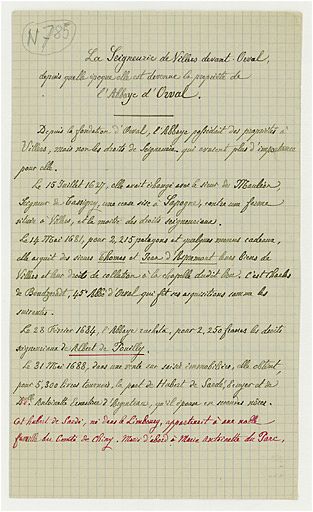 N 785
La Seigneurie de Villers devant-Orval,
depuis quelle époque elle est devenue la propriété de
l'Abbaye d'Orval.
Depuis la fondation d'Orval, l'Abbaye possédait des propriétés à
Villers, mais non les droits de Seigneurie, qui avaient plus d'importance
pour elle.
Le 15 Juillet 1627, elle avait échangé avec le sieur de
Seigneur de Tassigny, une cense sise à Sapogne, contre une ferme
située à Villers, et la moitié des droits seigneuriaux.
Le 14 Mai 1681, pour 2,215 patagons et quelques menus cadeaux,
elle acquit des sieurs Thomas et Jean d'Aspremont leurs biens de
Villers et leur droits de collation à la chapelle dudit lieu; c'est Charles
de Bentzeradt, 45e Abbé d'Orval qui fit ces acquisitions comme les
suivantes.
Le 28 Février 1684, l'Abbaye racheta, pour 2,250 francs les droits
seigneuriaux de Albert de Pouilly.
Le 31 Mai 1688, dans une vente sur saisie immobilière, elle obtint,
pour 5,300 livres tournois, la part de Hubert de Sardé, Ecuyer et de
Antoinette
Cet Hubert de Sardé, né dans le Limbourg, appartenait à une noble
famille du Comté de Chiny. Marié d'abord à Marie Antoinette du Parc,